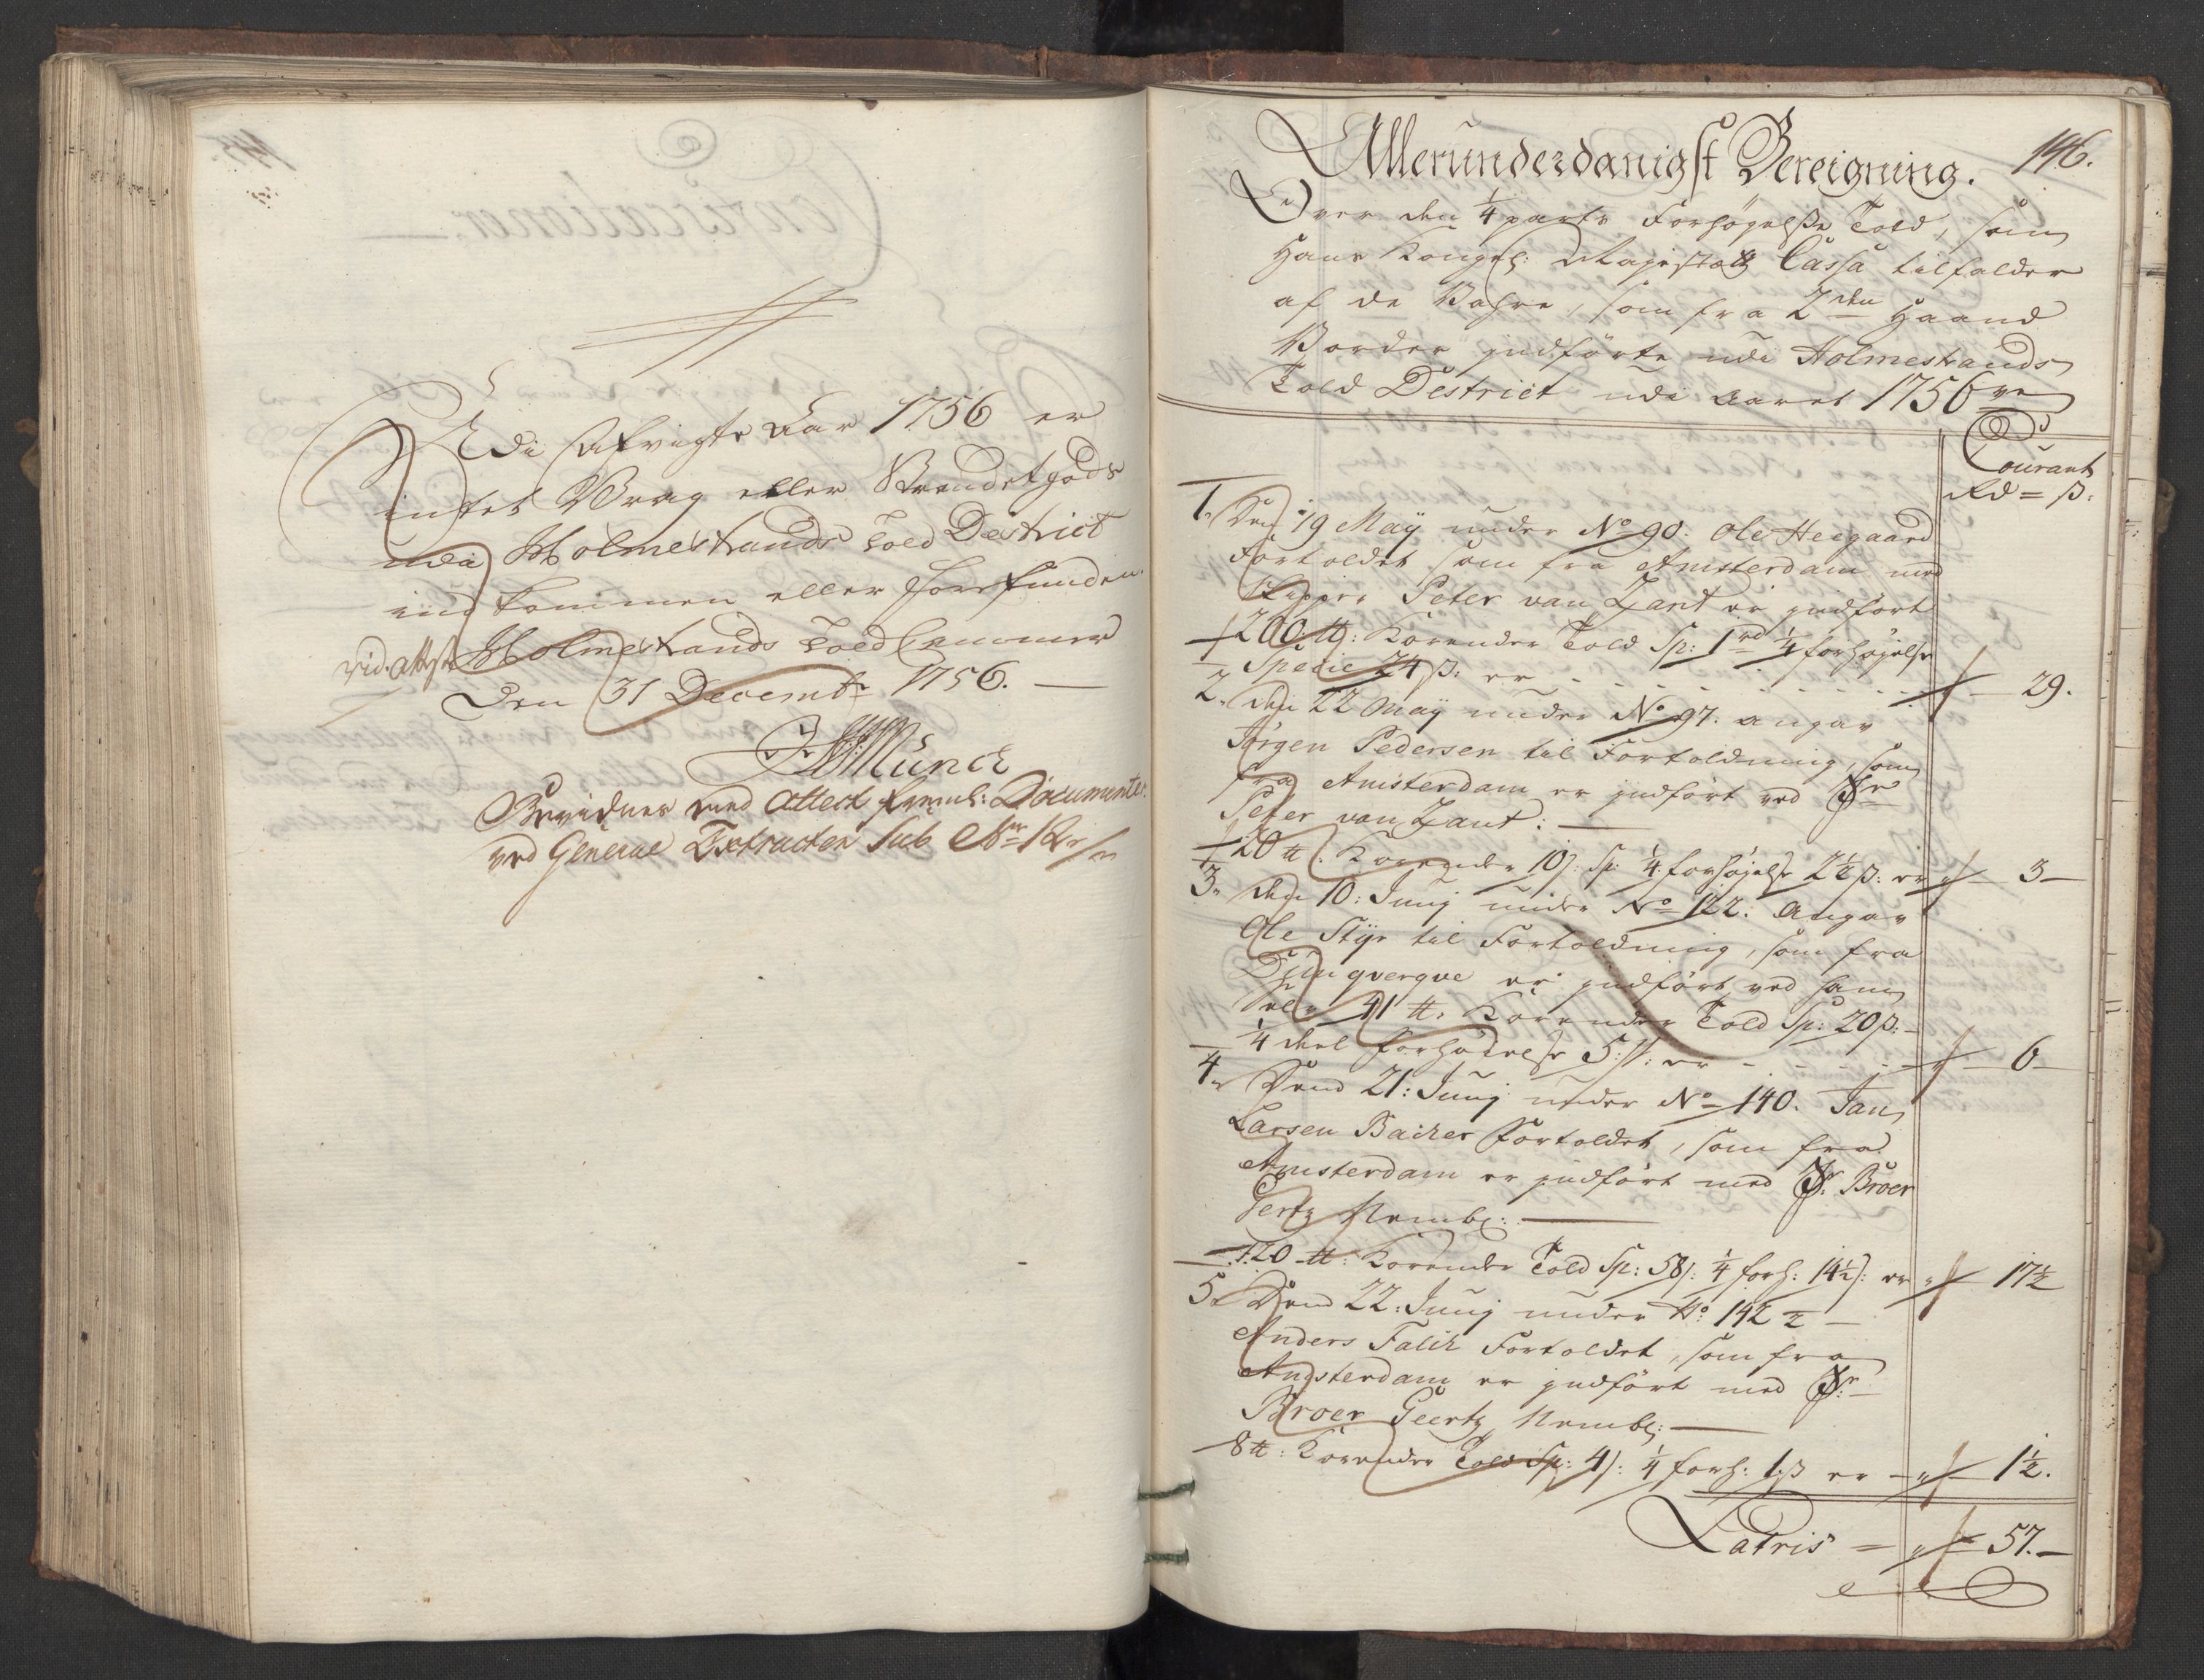 Udi Afvigte Aar 1756 er
intet Vrag eller Strandet gods
udi Holmestrands Told District
ind kommen eller forefunden.
vid. attest Holmestrands Told Cammer
Den 31 Decembr 1756. —
Münch
Bevidnes med Attest fremb: Documenter
ved General Extracten Sub No 12
146.
Allerunderdanigst Bereigning.
Over den ¼ parts Forhøgelse Told, som
Hans Kongel: Mayestætz Cassa tilfalder
af de Vahre, som fra 2den Haand
Vorder indførte udi Holmestrands
Told District udi Aaret 1756
Courant
Rd = ß:
1. Den 19 Maÿ under No 90: Ole Heegaard
Fortoldet som fra Amsterdam med
Skipper Peter van Zant er indført
200 ℔: Korender Told Sp: 1rd ¼ forhøjelse
Specie 24 ß: er - - - - - 29.
2. den 22 Maÿ under No 97. angav
Jørgen Pedersen til Fortoldning, som
fra Amsterdam er indført ved Sr
Peter van Zant: —
20 ℔: Korender 10 ß: Sp: ¼ forhøjelse 2½ ß: er — 3 —
3. den 10: Junÿ under No 122: Angav
Ole Styr til Fortoldning, som fra
Dünqverqve er indført ved ham
selv 41 ℔. Korender Told Sp: 20 ß: —
¼ deel forhøjelse 5: ß: er - - - - — 6 —
4. Dend 21: Junÿ under No 140. Jan
Larsen Backer Fortoldet, som fra
Amsterdam er indført med Sr. Broer
Gertz Nembl: —
120 ℔: Korender Told Sp: 58 ß: ¼ forh: 14½ ß: er — 17½
5. Dend 22: Junÿ under No: 142 —
Anders Falck Fortoldet, som fra
Amsterdam er indført med Sr: —
Broer Geertz Nembl: —
8 ℔: Korender Told Sp: 4 ß: ¼ forh: 1: ß er — 1½.
Latris = — 57. —